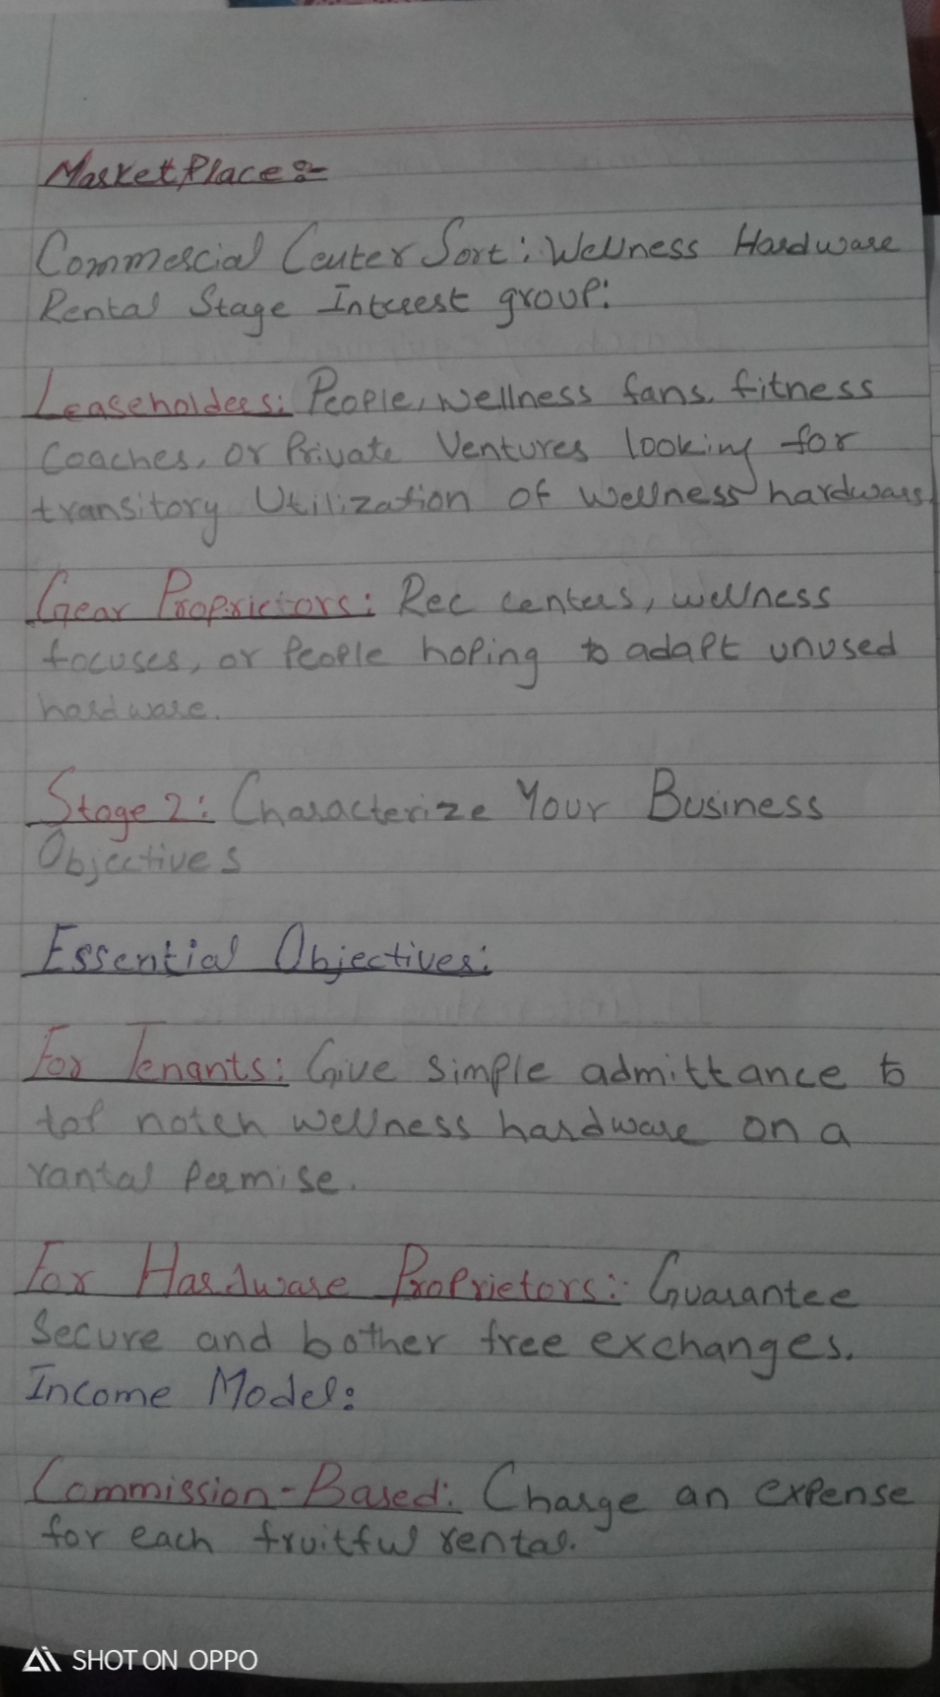 MarketPlace:-
Commercial Center Sort: Wellness Hardware
Rental Stage Interest group:
Leaseholders: People, wellness fans, fitness
Coaches, or Private Ventures looking for
transitory Utilization of wellness hardware.
Gear Proprietors: Rec centers, wellness
focuses, or People hoping to adapt unused
hardware.
Stage 2: Characterize Your Business
Objectives
Essential Objectives:
For Tenants: Give simple admittance to
top notch wellness hardware on a
rantal Permise.
For Hardware Proprietors: Guarantee
Secure and bother free exchanges.
Income Model:
Commission-Based: Charge an expense
for each fruitful rental.
SHOT ON OPPO